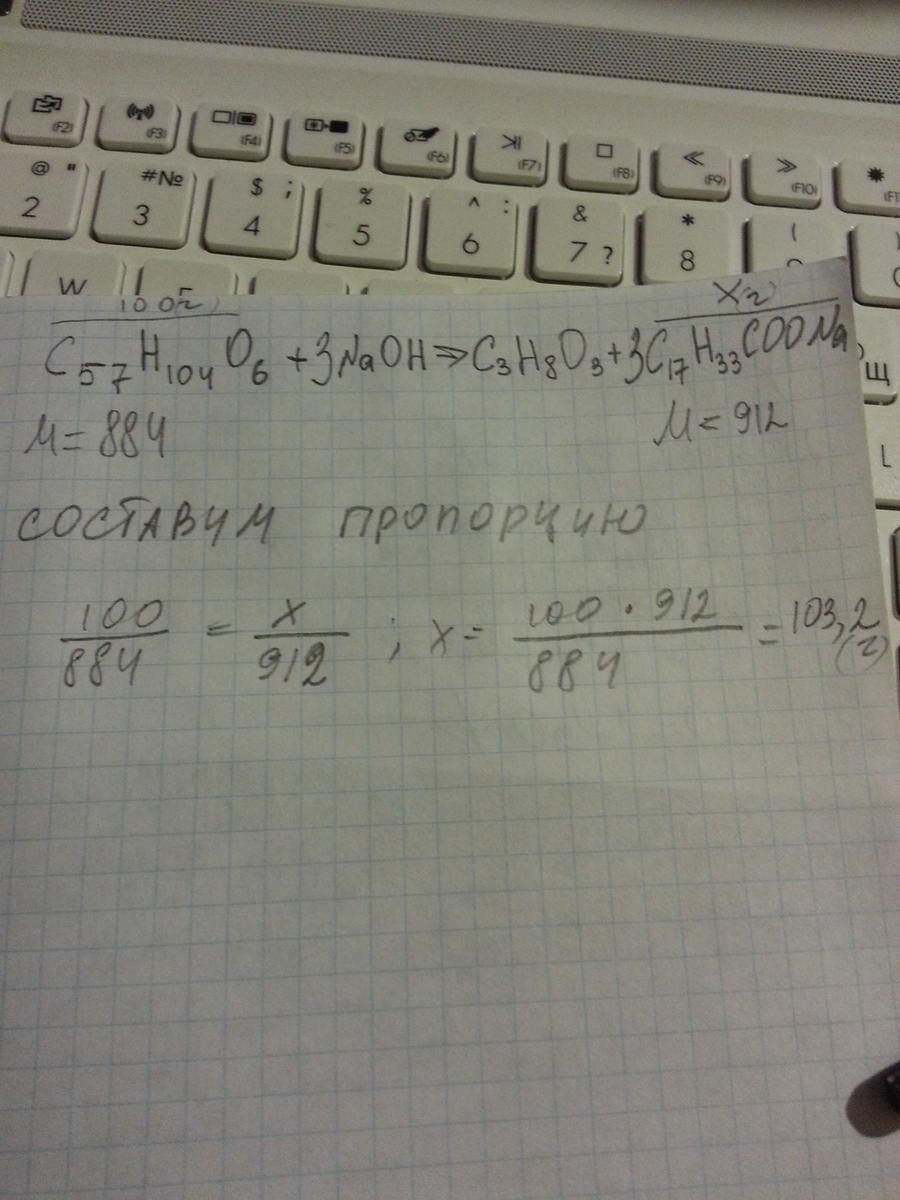 (F2) (F3) (F4) (F5) (F6) (F7) (F8) (F9) (F10)
@ " #№ $ ; % ^ : & * (
2 3 4 5 6 7 ? 8
W
100г X(г)
C₅₇H₁₀₄O₆ + 3NaOH ⇒ C₃H₈O₃ + 3C₁₇H₃₃COONa
Щ
M = 884 M = 912
L
СОСТАВИМ ПРОПОРЦИЮ
100/884 = x/912 ; x = 100 · 912/884 = 103,2 (г)